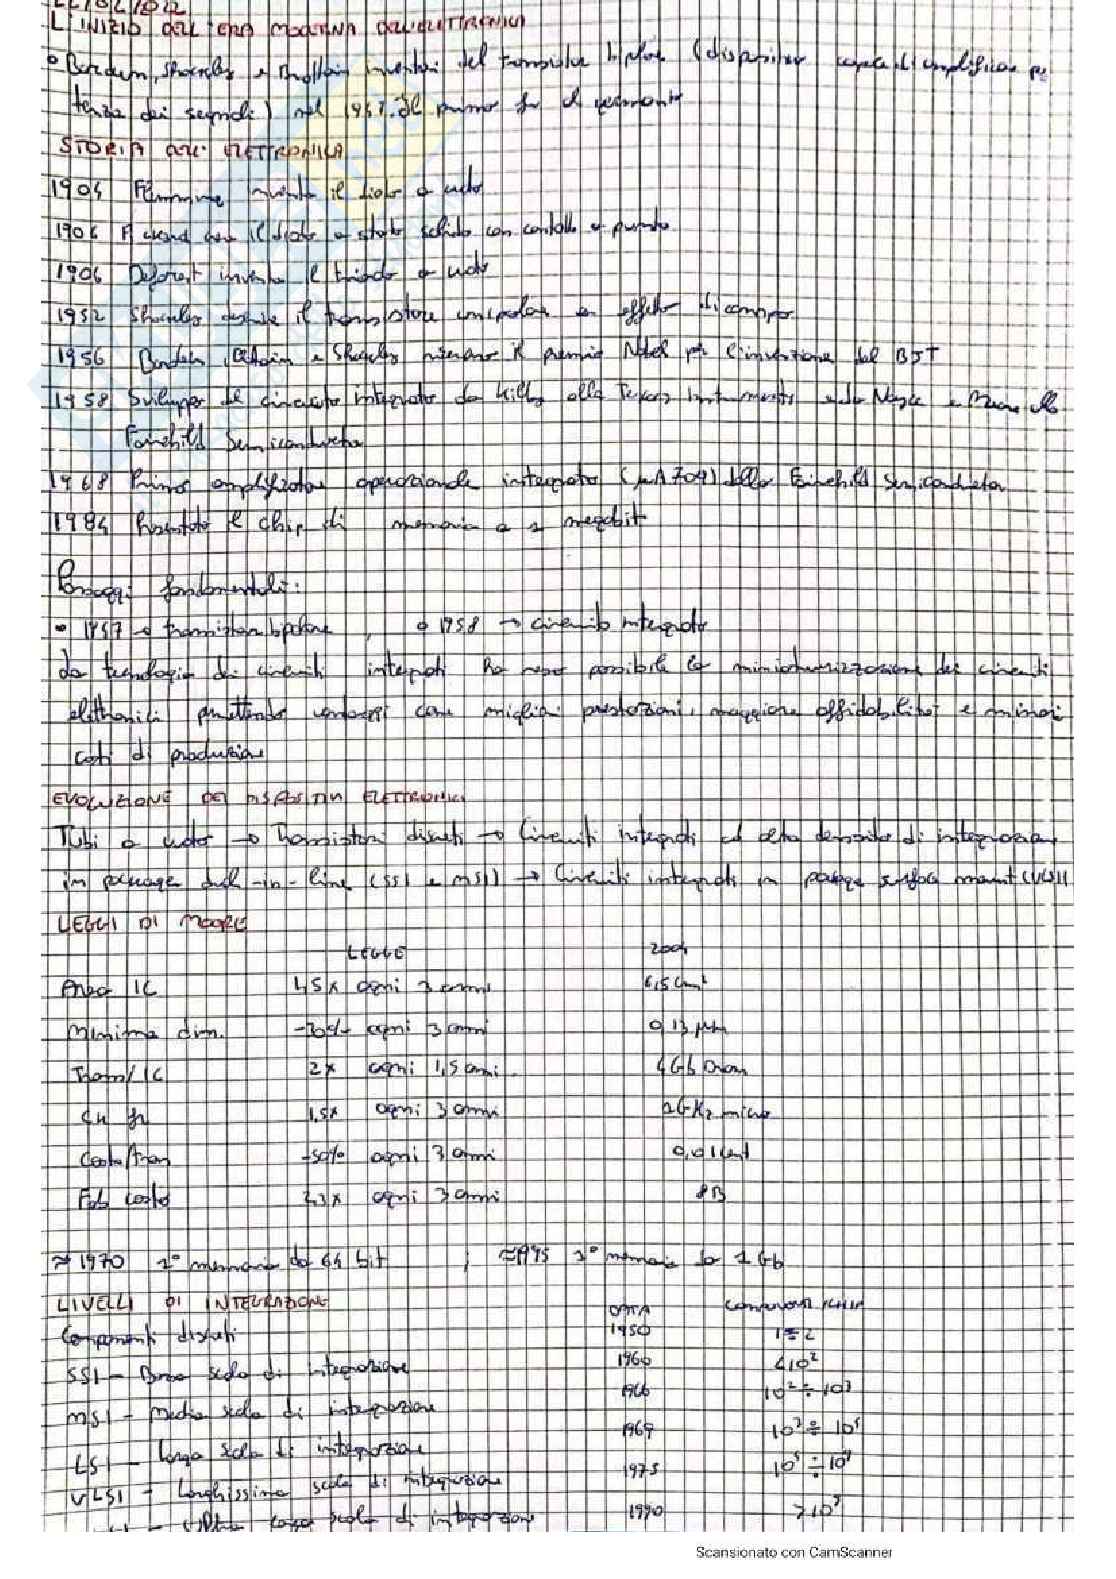 L'INIZIO DELL'ERA MODERNA DELL'ELETTRONICA
Bardeen, Shockley e Brattain inventori del transistor bipolare (dispositivo capace di amplificare po
tenza dei segnali) nel 1947. Il primo fu al germanio
STORIA DELL'ELETTRONICA
1904 Flemming inventa il diodo a vuoto
1906 Pickard crea il diodo a stato solido con contatto a punta
1906 Deforest inventa il triodo a vuoto
1952 Shockley descrive il transistore unipolare a effetto di campo
1956 Bardeen, Brattain e Shockley ricevono il premio Nobel per l'invenzione del BJT
1958 Sviluppo del circuito integrato da Kilby alla Texas Instruments e da Noyce e Moore alla
Fairchild Semiconductor
1968 Primo amplificatore operazionale integrato (μA709) dalla Fairchild Semiconductor
1984 Presentato il chip di memoria a 1 megabit
Passaggi fondamentali:
• 1947 → transistor bipolare , 1958 → circuito integrato
La tecnologia dei circuiti integrati ha reso possibile la miniaturizzazione dei circuiti
elettronici permettendo vantaggi come migliori prestazioni, maggiore affidabilità e minori
costi di produzione
EVOLUZIONE DEI DISPOSITIVI ELETTRONICI
Tubi a vuoto → Transistori discreti → Circuiti integrati ad alta densità di integrazione
in package dual-in-line (SSI e MSI) → Circuiti integrati in package surface mount (VLSI)
LEGGI DI MOORE
LEGGE 2004
Area IC 1,5x ogni 3 anni 6,5 cm²
Minima dim. -30% ogni 3 anni 0,13 μm
Trans/IC 2x ogni 1,5 anni 4Gb Dram
1,5x ogni 3 anni 2GHz micro
Costo/tran -50% ogni 3 anni 0,01 cent
Fab costo ogni 3 anni
≈1970 1° memoria da 64 bit ; ≈1995 1° memoria da 1 Gb
LIVELLI DI INTEGRAZIONE DATA COMPONENTI/CHIP
Componenti discreti 1950 1÷2
SSI - Bassa scala di integrazione 1960 <10²
MSI - Media scala di integrazione 1966 10² ÷ 10³
LSI - Larga scala di integrazione 1969 10³ ÷ 10⁵
VLSI - Larghissima scala di integrazione 1975
Ultra larga scala di integrazione 1990
Scansionato con CamScanner